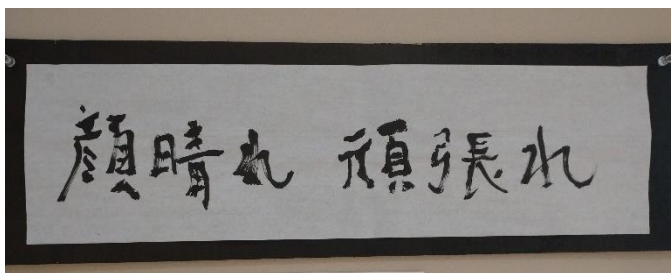 顔晴れ 頑張れ